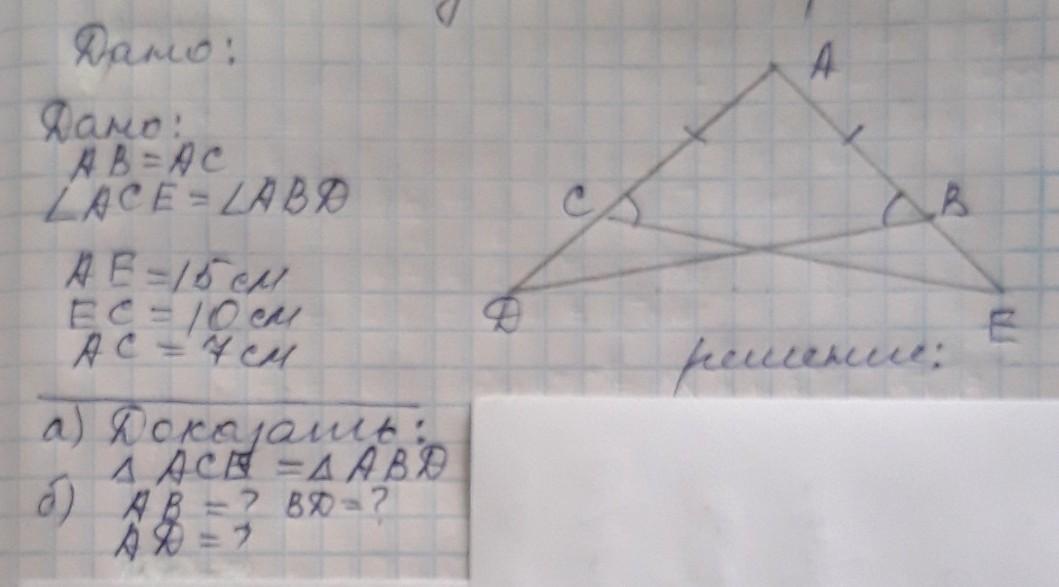 Дано:
Дано:
AB = AC
∠ACE = ∠ABD
AE = 15 см
EC = 10 см
AC = 7 см
а) Доказать:
△ ACE = △ ABD
б) AB = ? BD = ?
AD = ?
A
C
B
D
E
решение: